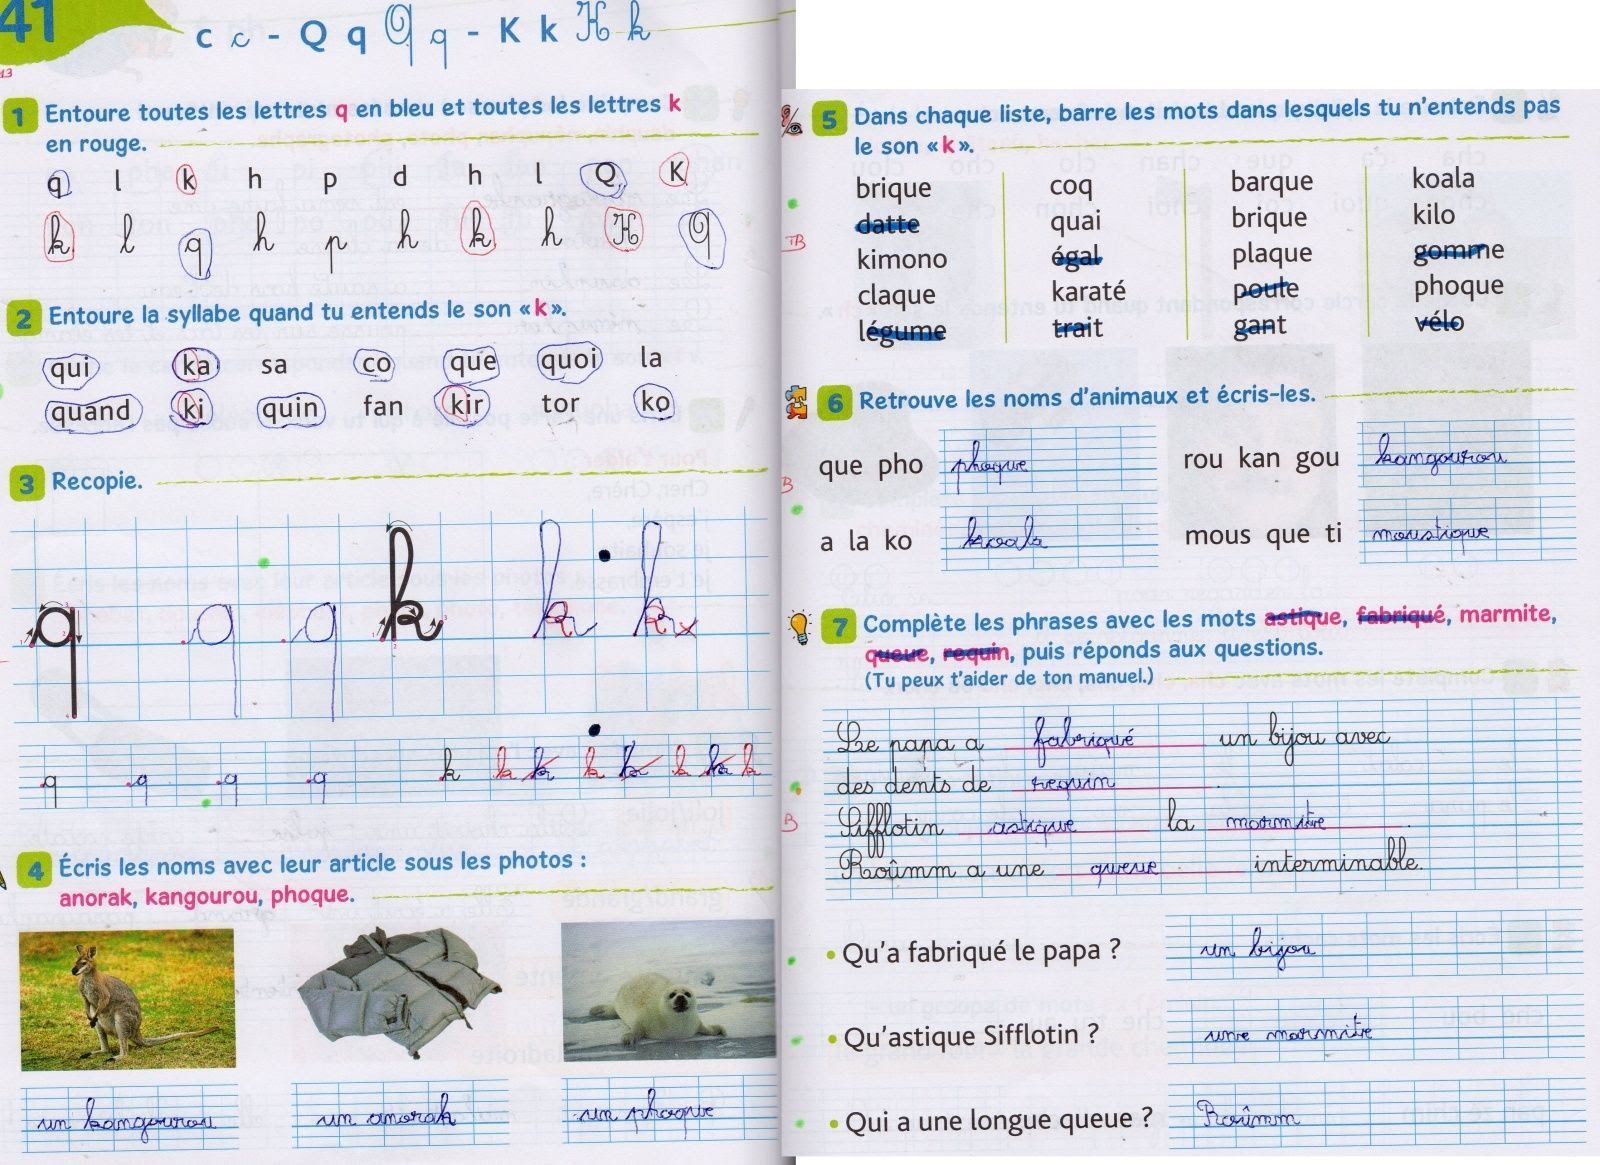 41
c c - Q q Q q - K k K k
13
1 Entoure toutes les lettres q en bleu et toutes les lettres k
en rouge.
q l k h p d h l Q K
k l q h p h k h K Q
2 Entoure la syllabe quand tu entends le son «k».
qui ka sa co que quoi la
quand ki quin fan kir tor ko
3 Recopie.
q q q k k k
q q q q k k k k k k k k
4 Écris les noms avec leur article sous les photos :
anorak, kangourou, phoque.
un kangourou un anorak un phoque
5 Dans chaque liste, barre les mots dans lesquels tu n'entends pas
le son «k».
brique coq barque koala
datte quai brique kilo
TB
kimono égal plaque gomme
claque karaté poule phoque
légume trait gant vélo
6 Retrouve les noms d'animaux et écris-les.
que pho phoque rou kan gou kangourou
B
a la ko koala mous que ti moustique
7 Complète les phrases avec les mots astique, fabriqué, marmite,
queue, requin, puis réponds aux questions.
(Tu peux t'aider de ton manuel.)
Le papa a fabriqué un bijou avec
des dents de requin.
B
Sifflotin astique la marmite.
Roûmm a une queue interminable.
• Qu'a fabriqué le papa ? un bijou
• Qu'astique Sifflotin ? une marmite
• Qui a une longue queue ? Roûmm